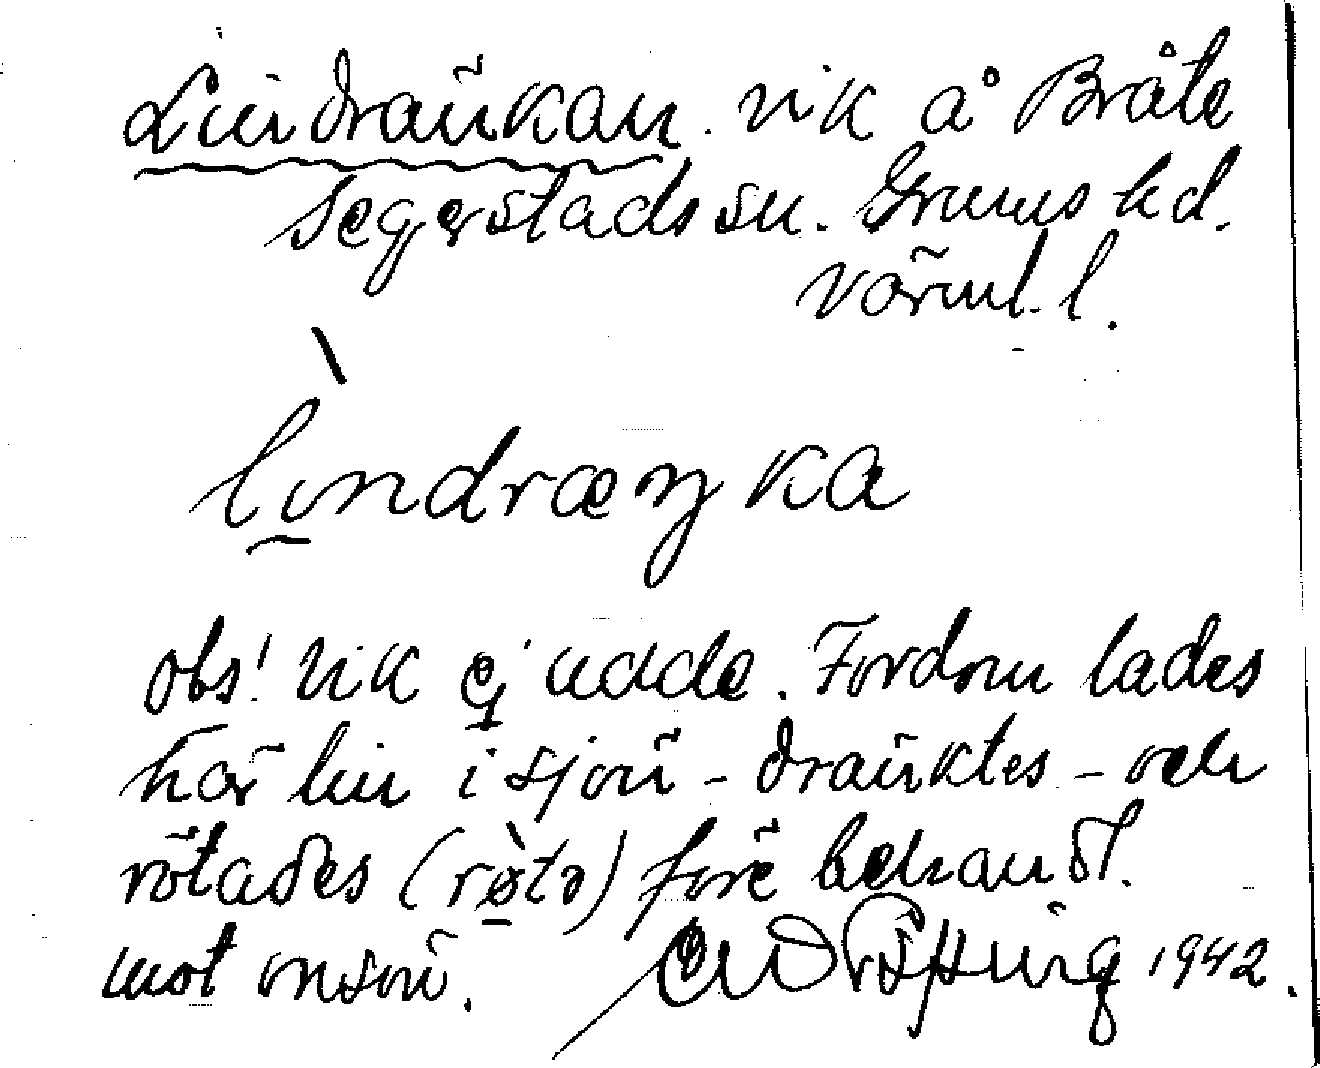 Lindränkan. vik å Bråte
Segerstads sn. Grums hd.
Värml. l.
lìndræŋka
obs! vik ej udde. Fordom lades
här lin i sjön - dränktes - och
rötades (rø̀tə) före behandl.
mot onsön. 1942.